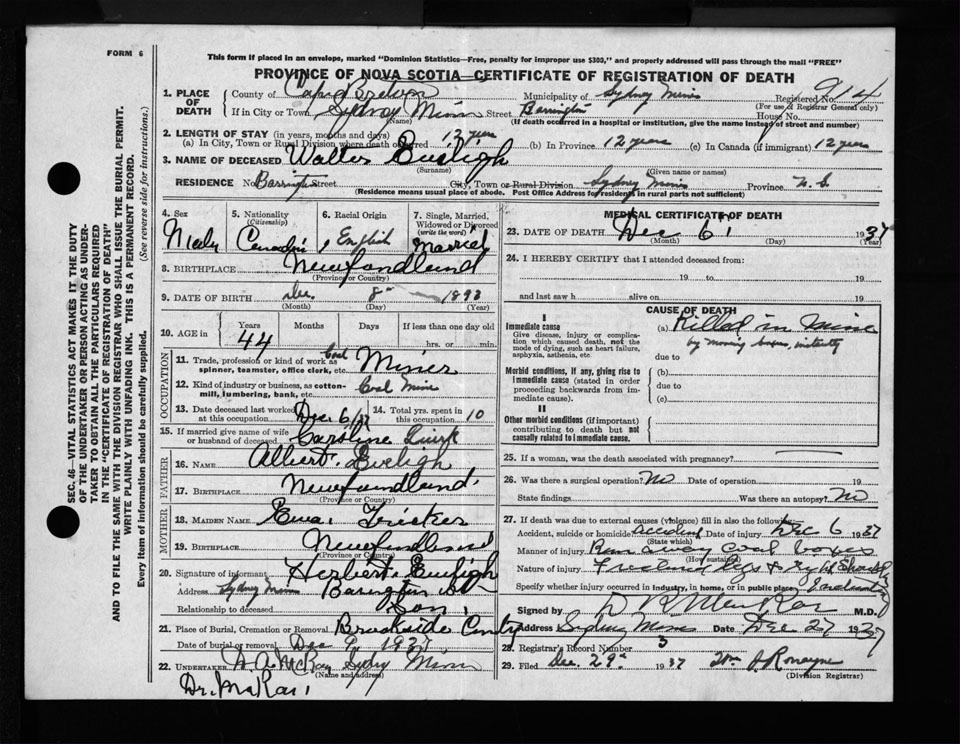 FORM 6
This form if placed in an envelope, marked "Dominion Statistics—Free, penalty for improper use $300," and properly addressed will pass through the mail "FREE"
PROVINCE OF NOVA SCOTIA—CERTIFICATE OF REGISTRATION OF DEATH
1. PLACE OF DEATH
County of Cape Breton Municipality of Sydney Mines Registered No. 914
(For use of Registrar General only)
If in City or Town Sydney Mines Street Barrington House No.
(Name) (If death occurred in a hospital or institution, give the name instead of street and number)
2. LENGTH OF STAY (in years, months and days)
(a) In City, Town or Rural Division where death occurred 12 years (b) In Province 12 years (c) In Canada (if immigrant) 12 years
3. NAME OF DECEASED Walter Eveligh
(Surname) (Given name or names)
RESIDENCE No. Barrington Street City, Town or Rural Division Sydney Mines Province N.S.
(Residence means usual place of abode. Post Office Address for residents in rural parts not sufficient)
4. Sex Male
5. Nationality (Citizenship) Canadian
6. Racial Origin English
7. Single, Married, Widowed or Divorced (write the word) Married
8. BIRTHPLACE Newfoundland
(Province or Country)
9. DATE OF BIRTH Dec. 8 1893
(Month) (Day) (Year)
10. AGE in Years Months Days If less than one day
44 hrs. or min.
OCCUPATION
11. Trade, profession or kind of work as spinner, teamster, office clerk, etc. Coal Miner
12. Kind of industry or business, as cotton-mill, lumbering, bank, etc. Coal Mine
13. Date deceased last worked at this occupation Dec 6/37
14. Total yrs. spent in this occupation 10
15. If married give name of wife or husband of deceased Caroline Quirk
FATHER
16. NAME Albert Eveligh
17. BIRTHPLACE Newfoundland
(Province or Country)
MOTHER
18. MAIDEN NAME Ema Tricker
19. BIRTHPLACE Newfoundland
(Province or Country)
20. Signature of informant Herbert Eveligh
Address Sydney Mines Barrington St
Relationship to deceased Son
21. Place of Burial, Cremation or Removal Brookside Cemtry
Date of burial or removal Dec 9 1937
22. UNDERTAKER A. McKay Sydney Mines
(Name and address)
Dr. McRae
MEDICAL CERTIFICATE OF DEATH
23. DATE OF DEATH Dec 6 1937
(Month) (Day) (Year)
24. I HEREBY CERTIFY that I attended deceased from:
19 to 19
and last saw h alive on 19
CAUSE OF DEATH
I
Immediate cause
Give disease, injury or complication which caused death, not the mode of dying, such as heart failure, asphyxia, asthenia, etc.
(a) Killed in Mine
by moving boxes, instantly
due to
Morbid conditions, if any, giving rise to immediate cause (stated in order proceeding backwards from immediate cause).
(b)
due to
(c)
II
Other morbid conditions (if important) contributing to death but not causally related to immediate cause.
25. If a woman, was the death associated with pregnancy?
26. Was there a surgical operation? No Date of operation 19
State findings Was there an autopsy? No
27. If death was due to external causes (violence) fill in also the following:
Accident, suicide or homicide accident Date of injury Dec 6 1937
(State which)
Manner of injury Run away coal boxes
(How sustained)
Nature of injury Fractured legs & right Shoulder
Specify whether injury occurred in industry, in home, or in public place Industry
Signed by M.D.
Address Sydney Mines Date Dec 27 1937
28. Registrar's Record Number 3
29. Filed Dec. 29 1937 Wm A Romayne
(Division Registrar)
SEC. 46—VITAL STATISTICS ACT MAKES IT THE DUTY
OF THE UNDERTAKER OR PERSON ACTING AS UNDER-
TAKER TO OBTAIN ALL THE PARTICULARS REQUIRED
IN THE "CERTIFICATE OF REGISTRATION OF DEATH"
AND TO FILE THE SAME WITH THE DIVISION REGISTRAR WHO SHALL ISSUE THE BURIAL PERMIT.
WRITE PLAINLY WITH UNFADING INK. THIS IS A PERMANENT RECORD.
Every item of information should be carefully supplied. (See reverse side for instructions.)